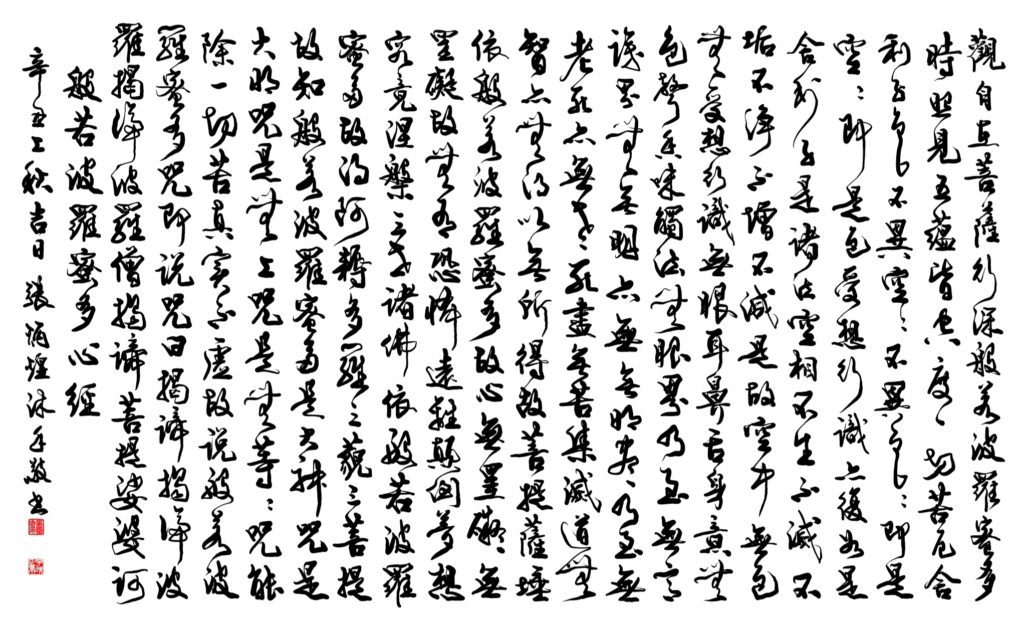 觀自在菩薩行深般若波羅蜜多
時照見五蘊皆空度一切苦厄舍
利子色不異空空不異色色即是
空空即是色受想行識亦復如是
舍利子是諸法空相不生不滅不
垢不淨不增不減是故空中無色
無受想行識無眼耳鼻舌身意無
色聲香味觸法無眼界乃至無意
識界無無明亦無無明盡乃至無
老死亦無老死盡無苦集滅道無
智亦無得以無所得故菩提薩埵
依般若波羅蜜多故心無罣礙無
罣礙故無有恐怖遠離顛倒夢想
究竟涅槃三世諸佛依般若波羅
蜜多故得阿耨多羅三藐三菩提
故知般若波羅蜜多是大神咒是
大明咒是無上咒是無等等咒能
除一切苦真實不虛故說般若波
羅蜜多咒即說咒曰揭諦揭諦波
羅揭諦波羅僧揭諦菩提娑婆訶
般若波羅蜜多心經
辛丑上秋吉日 張炳煌沐手敬書